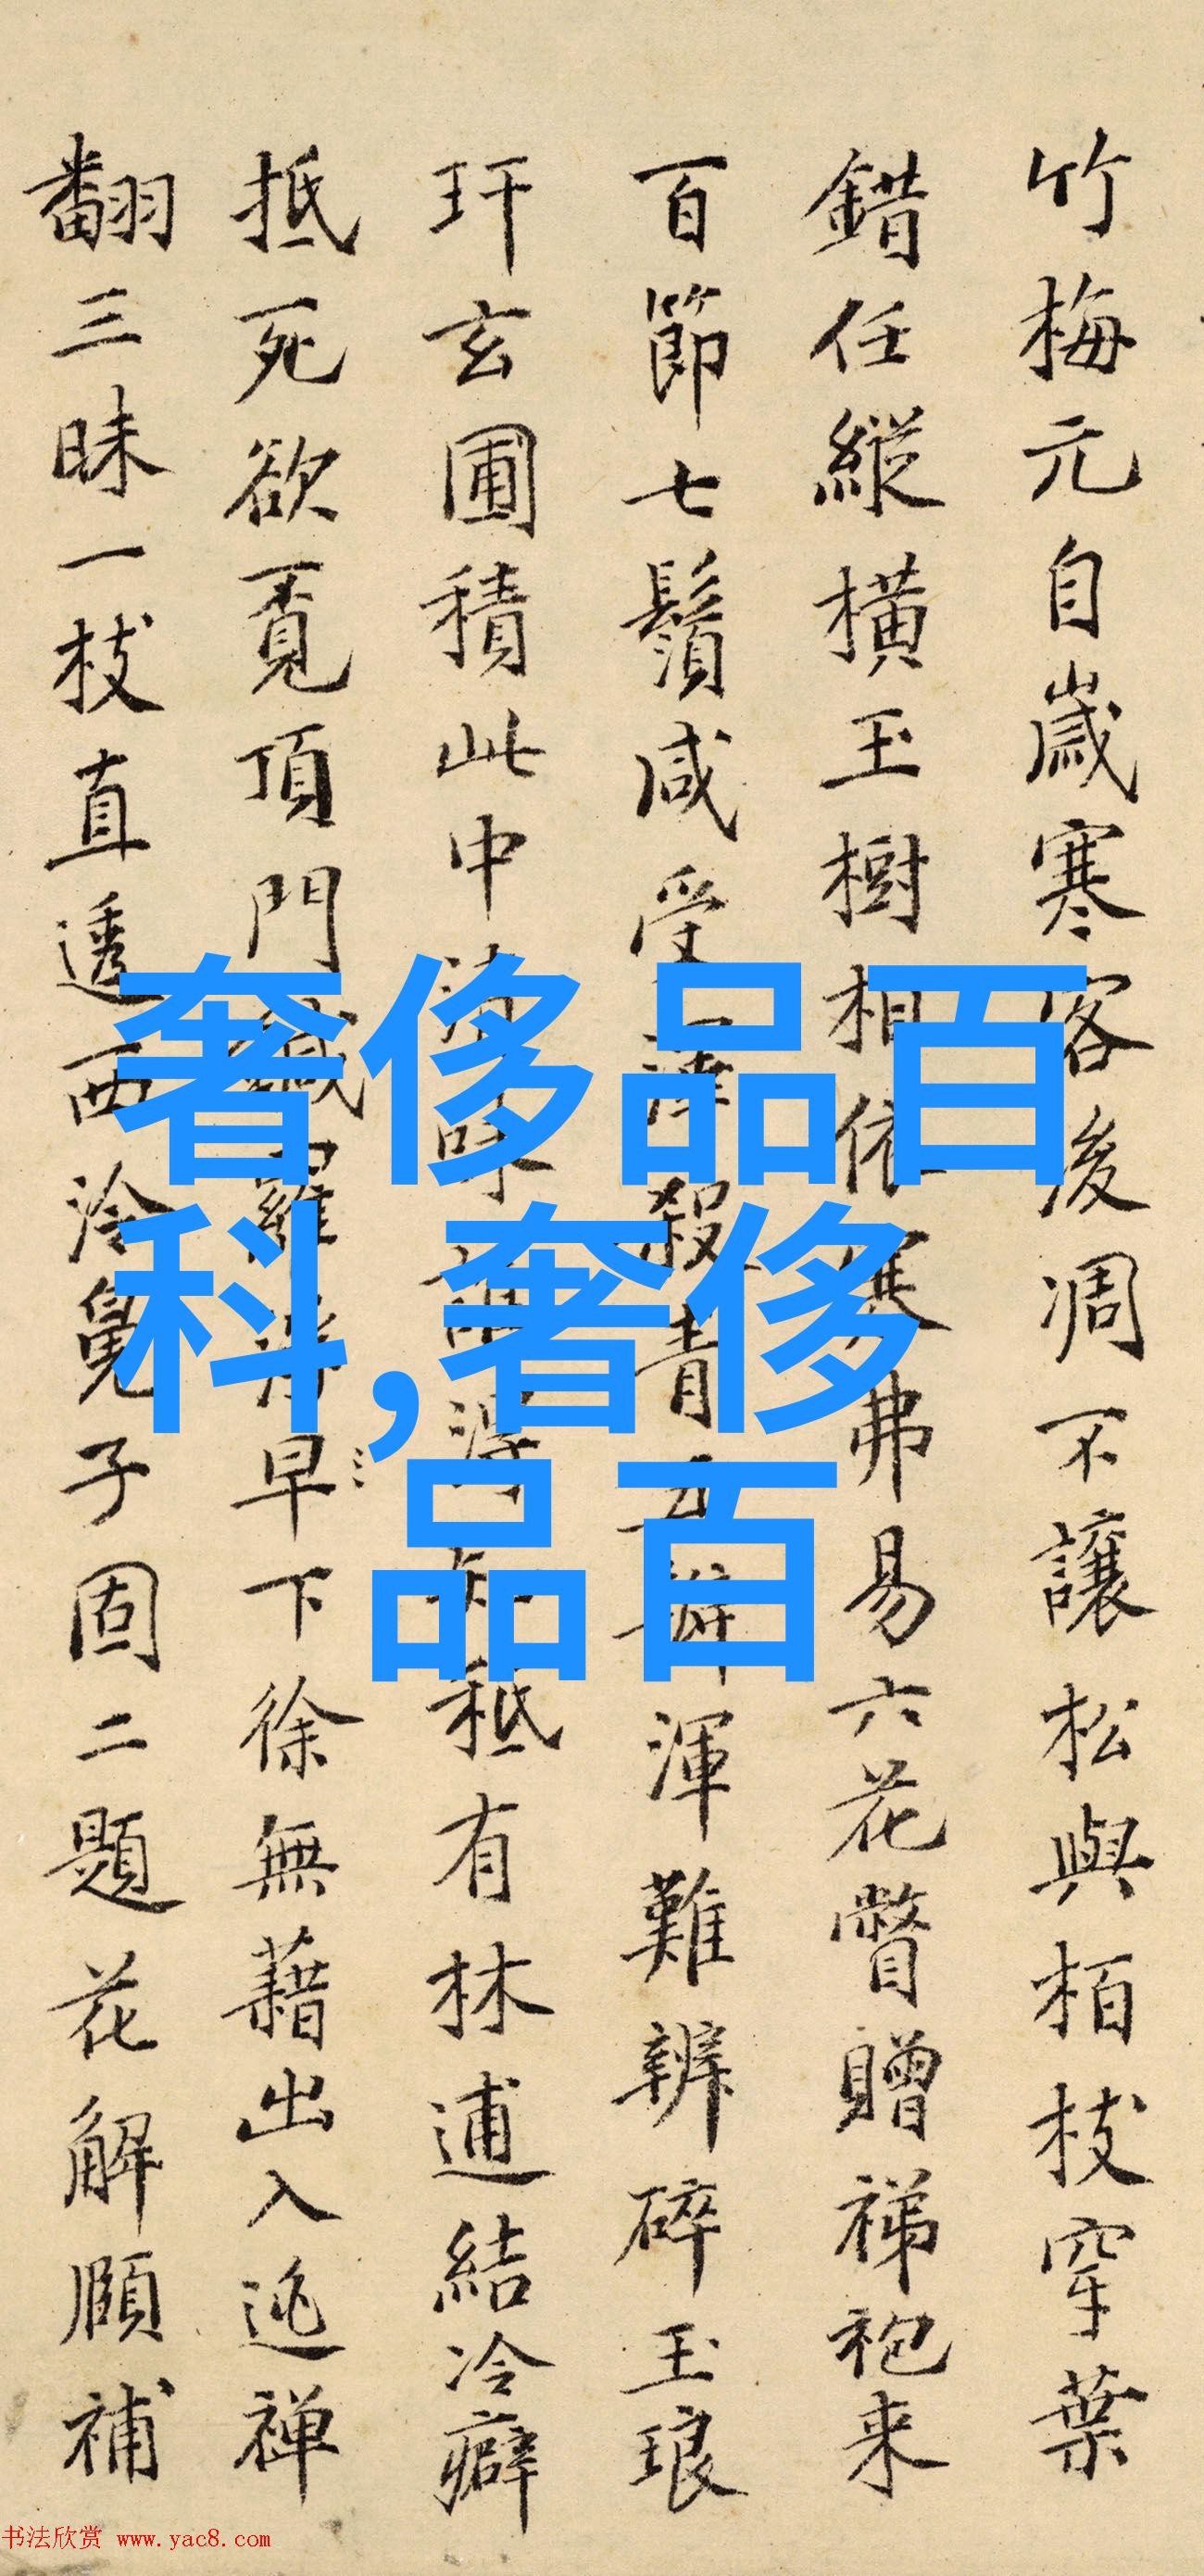 竹梅元自歲寒客後凋不讓松與栢枝穿葉
錯任縱橫玉樹相依寒弗易六花瞥贈祶袍来
百節七鬚咸受殺青難辨碎玉琅
玕玄圃積此中有林逋結冷癖
抵死欲覔頂門早下徐無藉出入逃禅
翻三昧一枝直透西泠鳬子固二題花解頤補
奢侈品百
科,奢侈
品百
书法欣赏 www.yac8.com